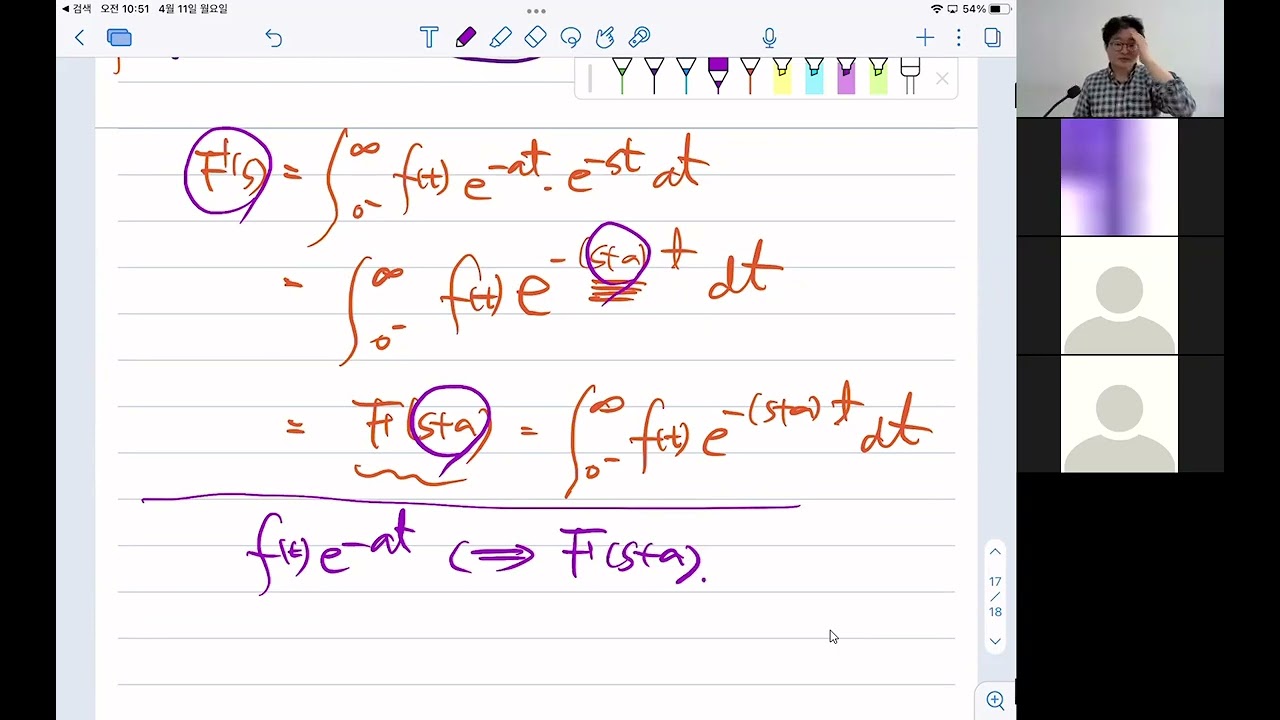 검색 오전 10:51 4월 11일 월요일 54%
F(s) = ∫₀₋^∞ f(t) e^{-at} · e^{-st} dt
= ∫₀₋^∞ f(t) e^{-(s+a)t} dt
= F(s+a) = ∫₀₋^∞ f(t) e^{-(s+a)t} dt
f(t) e^{-at} ⟺ F(s+a).
17
/
18